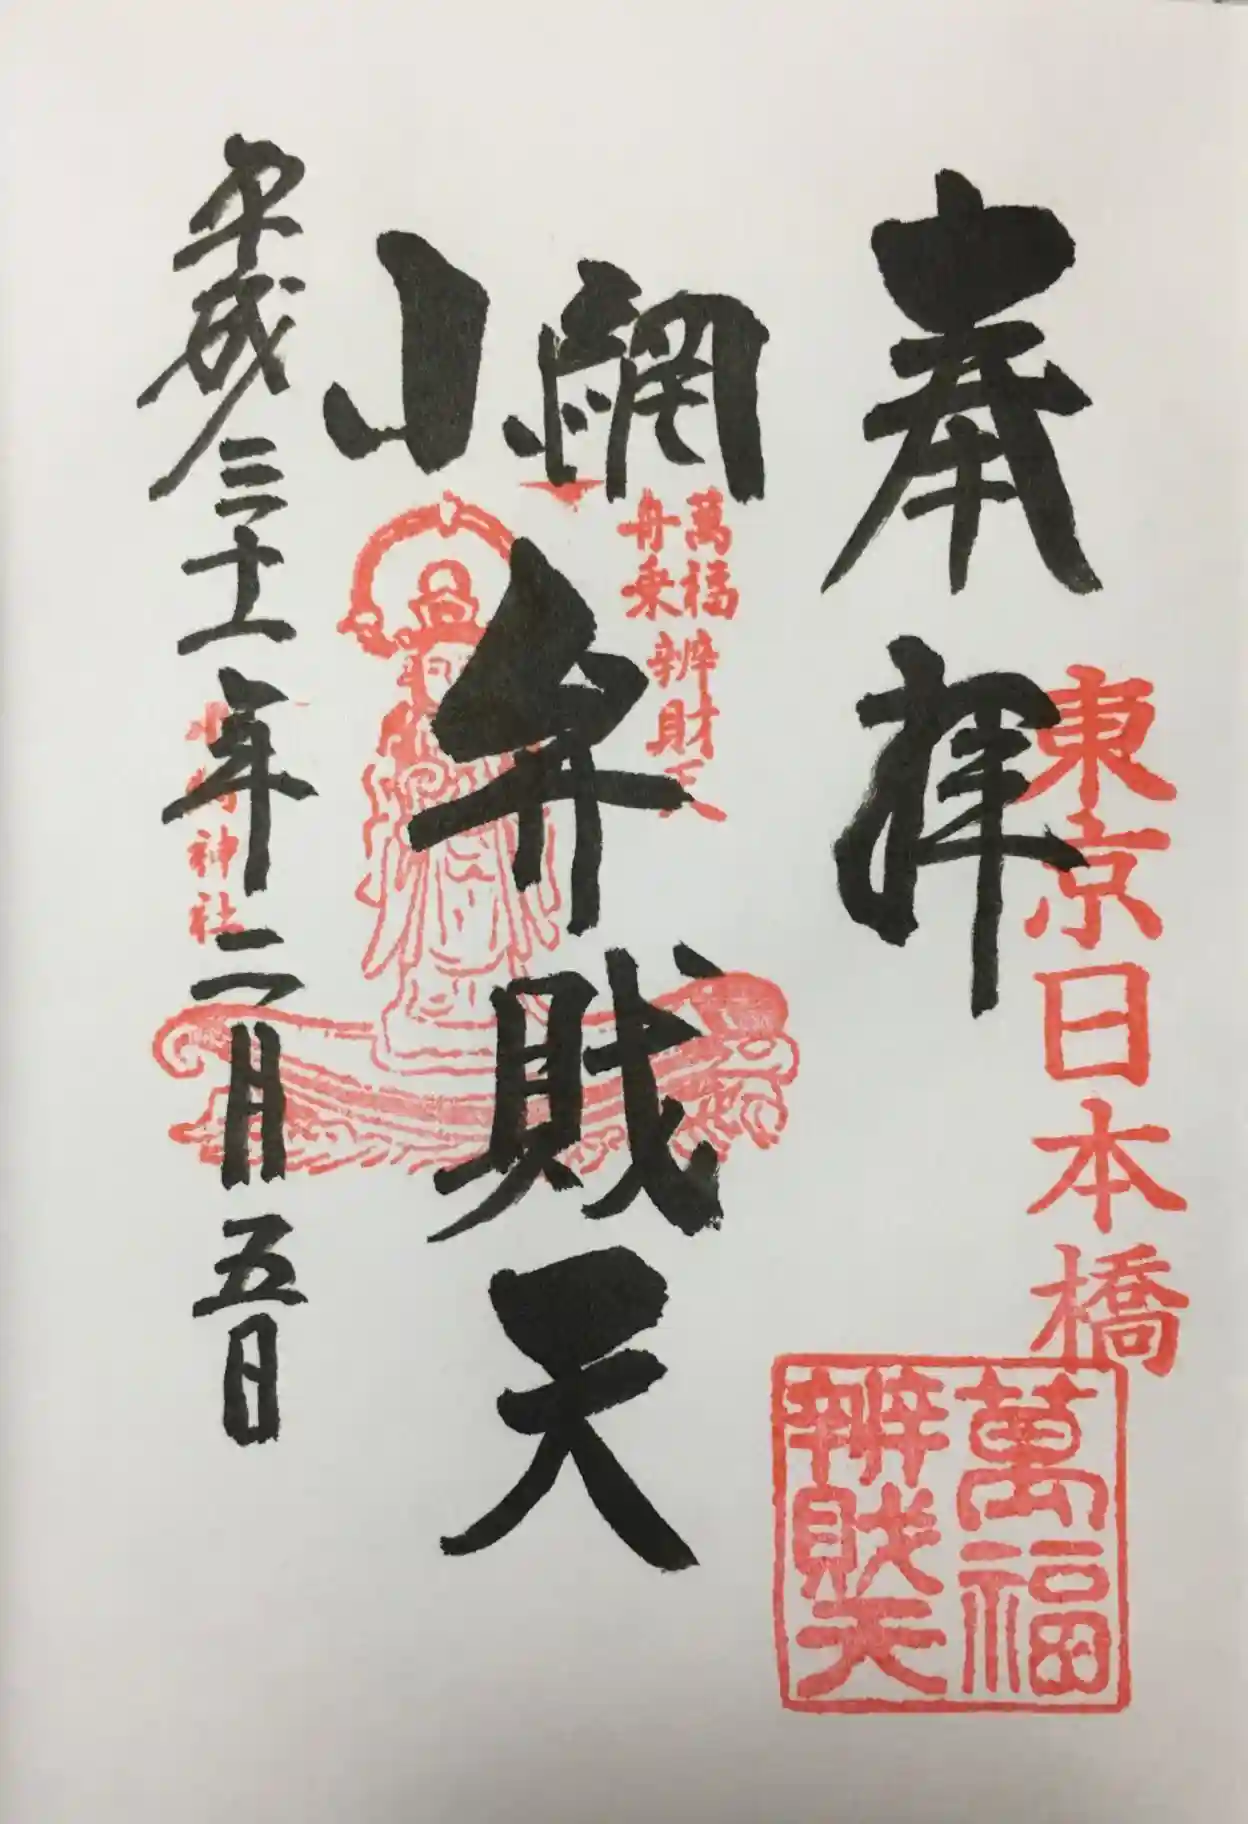 東京日本橋
奉拝
萬福
辨財天
萬福
舟乗
辨財天
小網
弁財天
平成三十一年二月五日
小網神社